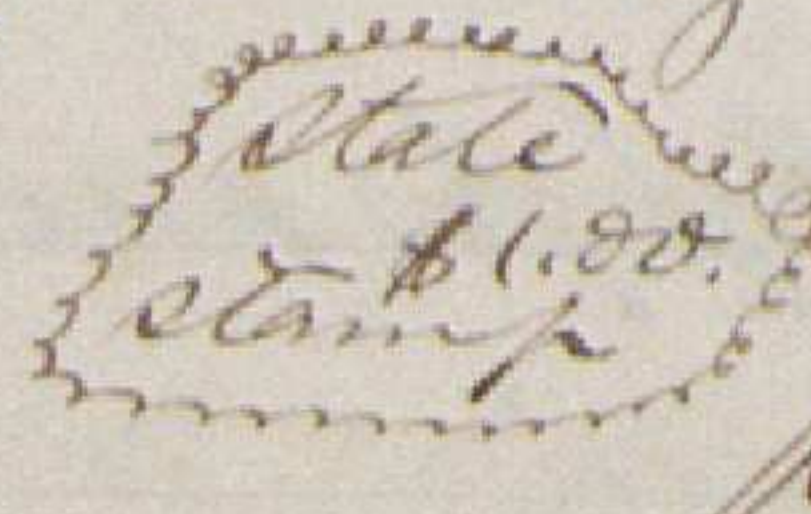 State
$1.00.
Stamp